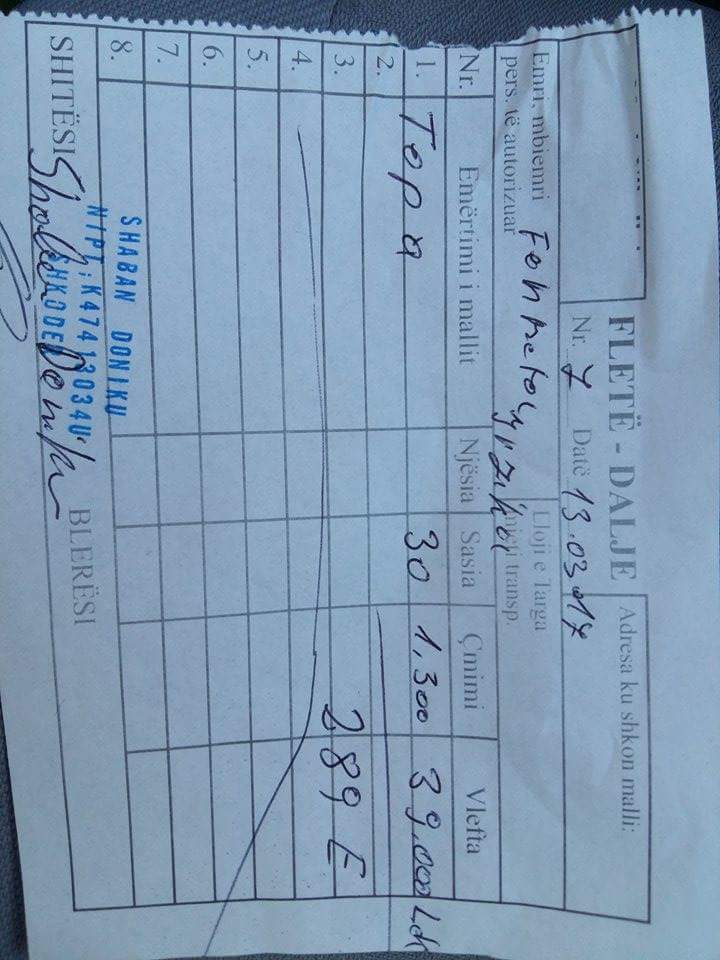 FLETË - DALJE
Nr. 7 Datë 13.03.017
Adresa ku shkon malli:
Emri, mbiemri
pers. të autorizuar
Lloji e Targa
mjeti transp.
Nr. Emërtimi i mallit Njësia Sasia Çmimi Vlefta
1. Topa 30 1,300 39,000 Lek
2.
3. 289 E
4.
5.
6.
7.
8.
SHITËSI BLERËSI
SHABAN DONIKU
NIPT: K47413034U
SHKODER
Shaban Doniku